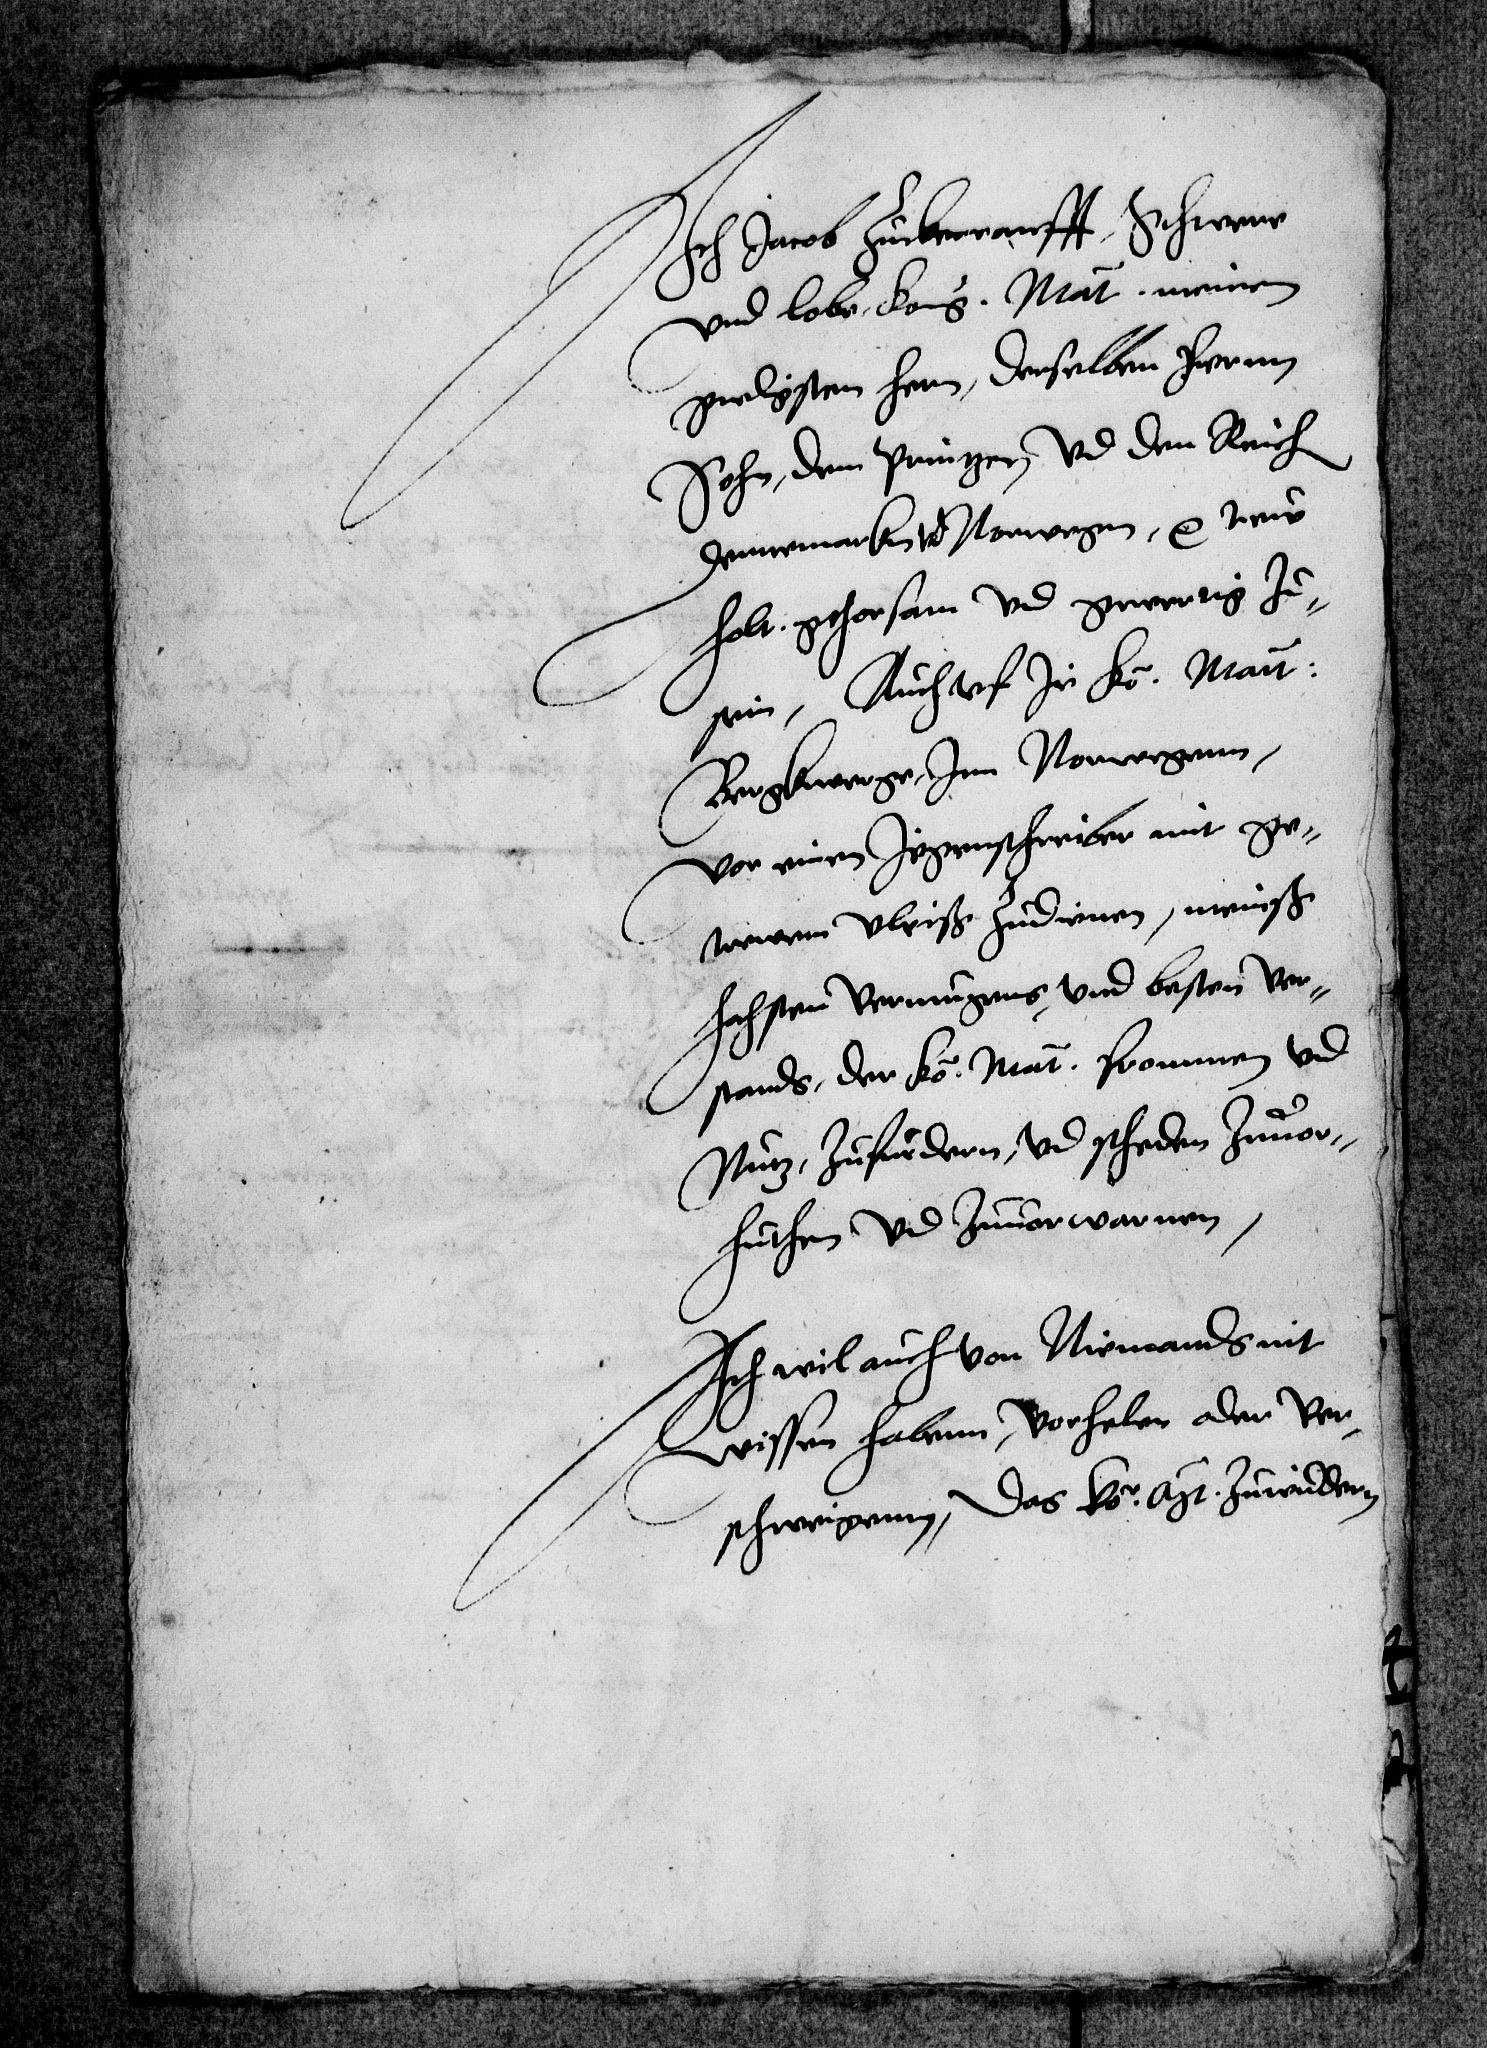 Ich Jacob Zuckerranfft, Schwere
vnd lobe, Kong. Mat. meinem
gnedigsten hern, derselben Hernn
Sohn, dem Printzen, vnd den Reich
Dennemarken vnd Norwegen, e trew
holt. gehorsam vnd gewertig zu-
sein, Auch vf Ir Ko. Matt:
Bergkwerge, Inn Norwegenn,
vor einen Jegenschreiber mit ge-
trewem vleiß zudienen, meinß
hochsten vermugens, vnd besten ver-
stands, der Ko. Mat. frommen vnd
Nutz, zufurdern, vnd scheden zuuor-
huthen vnd zuuorwarnen,
Ich wil auch von Niemands nit
wissen habenn, vorhelen oder ver-
schweigenn, Das Ko. Mt. zuwiddern